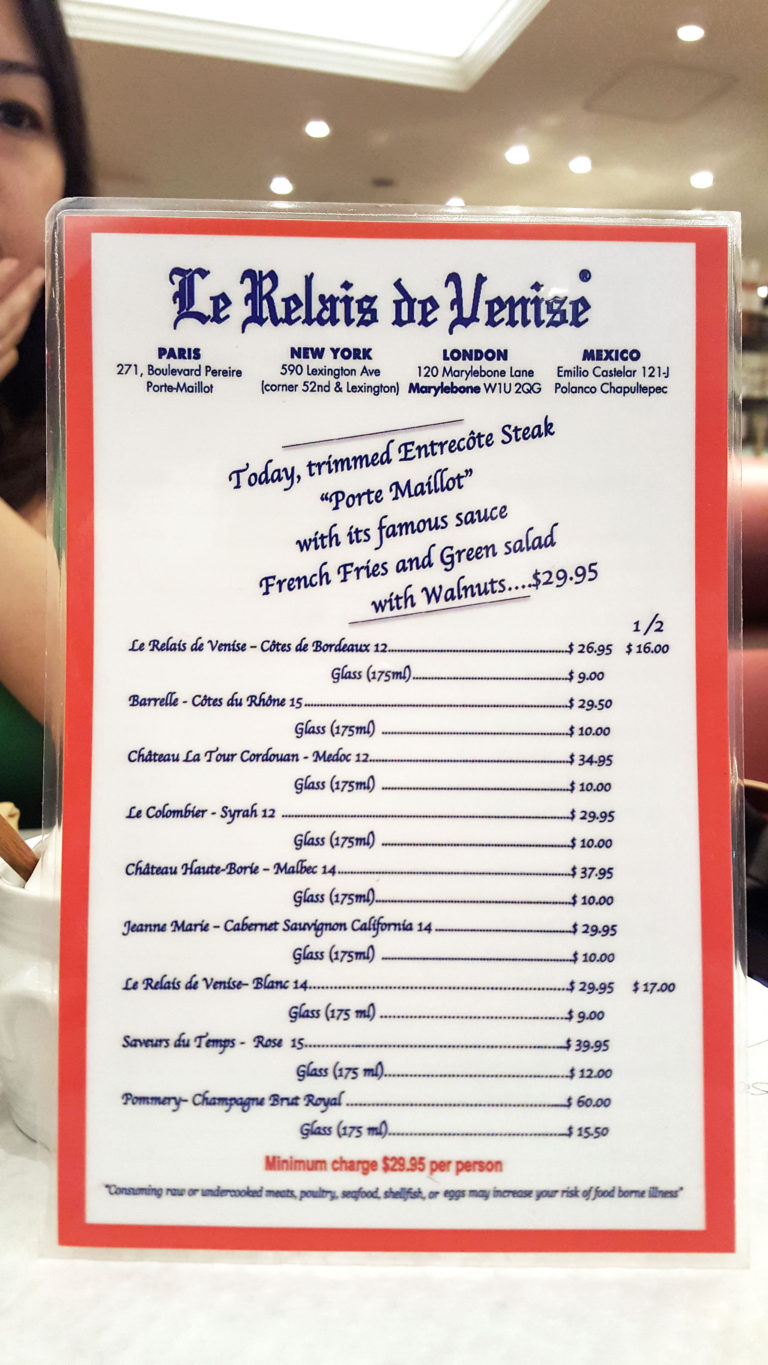 Le Relais de Venise®
PARIS NEW YORK LONDON MEXICO
271, Boulevard Pereire 590 Lexington Ave 120 Marylebone Lane Emilio Castelar 121-J
Porte-Maillot (corner 52nd & Lexington) Marylebone W1U 2QG Polanco Chapultepec
Today, trimmed Entrecôte Steak
"Porte Maillot"
with its famous sauce
French Fries and Green salad
with Walnuts....$29.95
1/2
Le Relais de Venise – Côtes de Bordeaux 12....$ 26.95 $ 16.00
Glass (175ml)....$ 9.00
Barrelle - Côtes du Rhône 15....$ 29.50
Glass (175ml) ....$ 10.00
Château La Tour Cordouan - Medoc 12....$ 34.95
Glass (175ml) ....$ 10.00
Le Colombier - Syrah 12 ....$ 29.95
Glass (175ml) ....$ 10.00
Château Haute-Borie – Malbec 14....$ 37.95
Glass (175ml)....$ 10.00
Jeanne Marie – Cabernet Sauvignon California 14 ....$ 29.95
Glass (175ml) ....$ 10.00
Le Relais de Venise– Blanc 14....$ 29.95 $ 17.00
Glass (175 ml) ....$ 9.00
Saveurs du Temps - Rose 15....$ 39.95
Glass (175 ml)....$ 12.00
Pommery– Champagne Brut Royal ....$ 60.00
Glass (175 ml)....$ 15.50
Minimum charge $29.95 per person
"Consuming raw or undercooked meats, poultry, seafood, shellfish, or eggs may increase your risk of food borne illness"